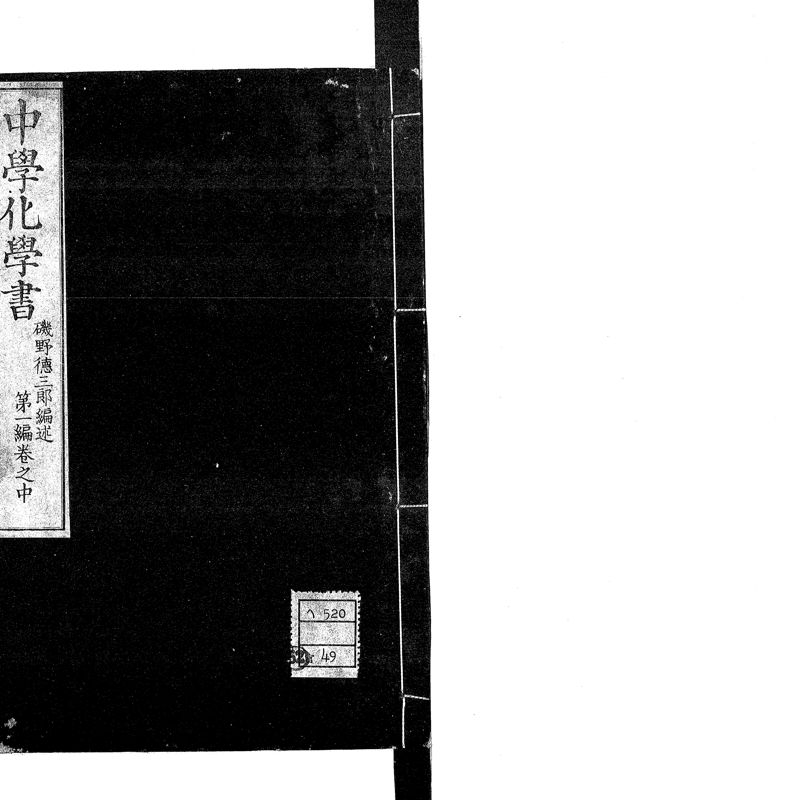 中學化學書
磯野德三郎編述
第一編卷之中
ヘ 520
49